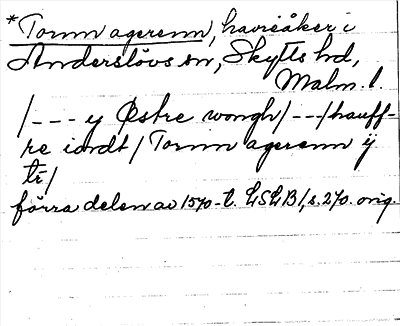 *Tornn agerenn, havreåker i
Anderslövs sn, Skytts hd,
Malm. l.
/--- y Østre wongh/---/hauff-
re iordt/ Tornn agerenn ÿ
tr/
förra delen av 1570-t. LSLB1, s. 270. orig.